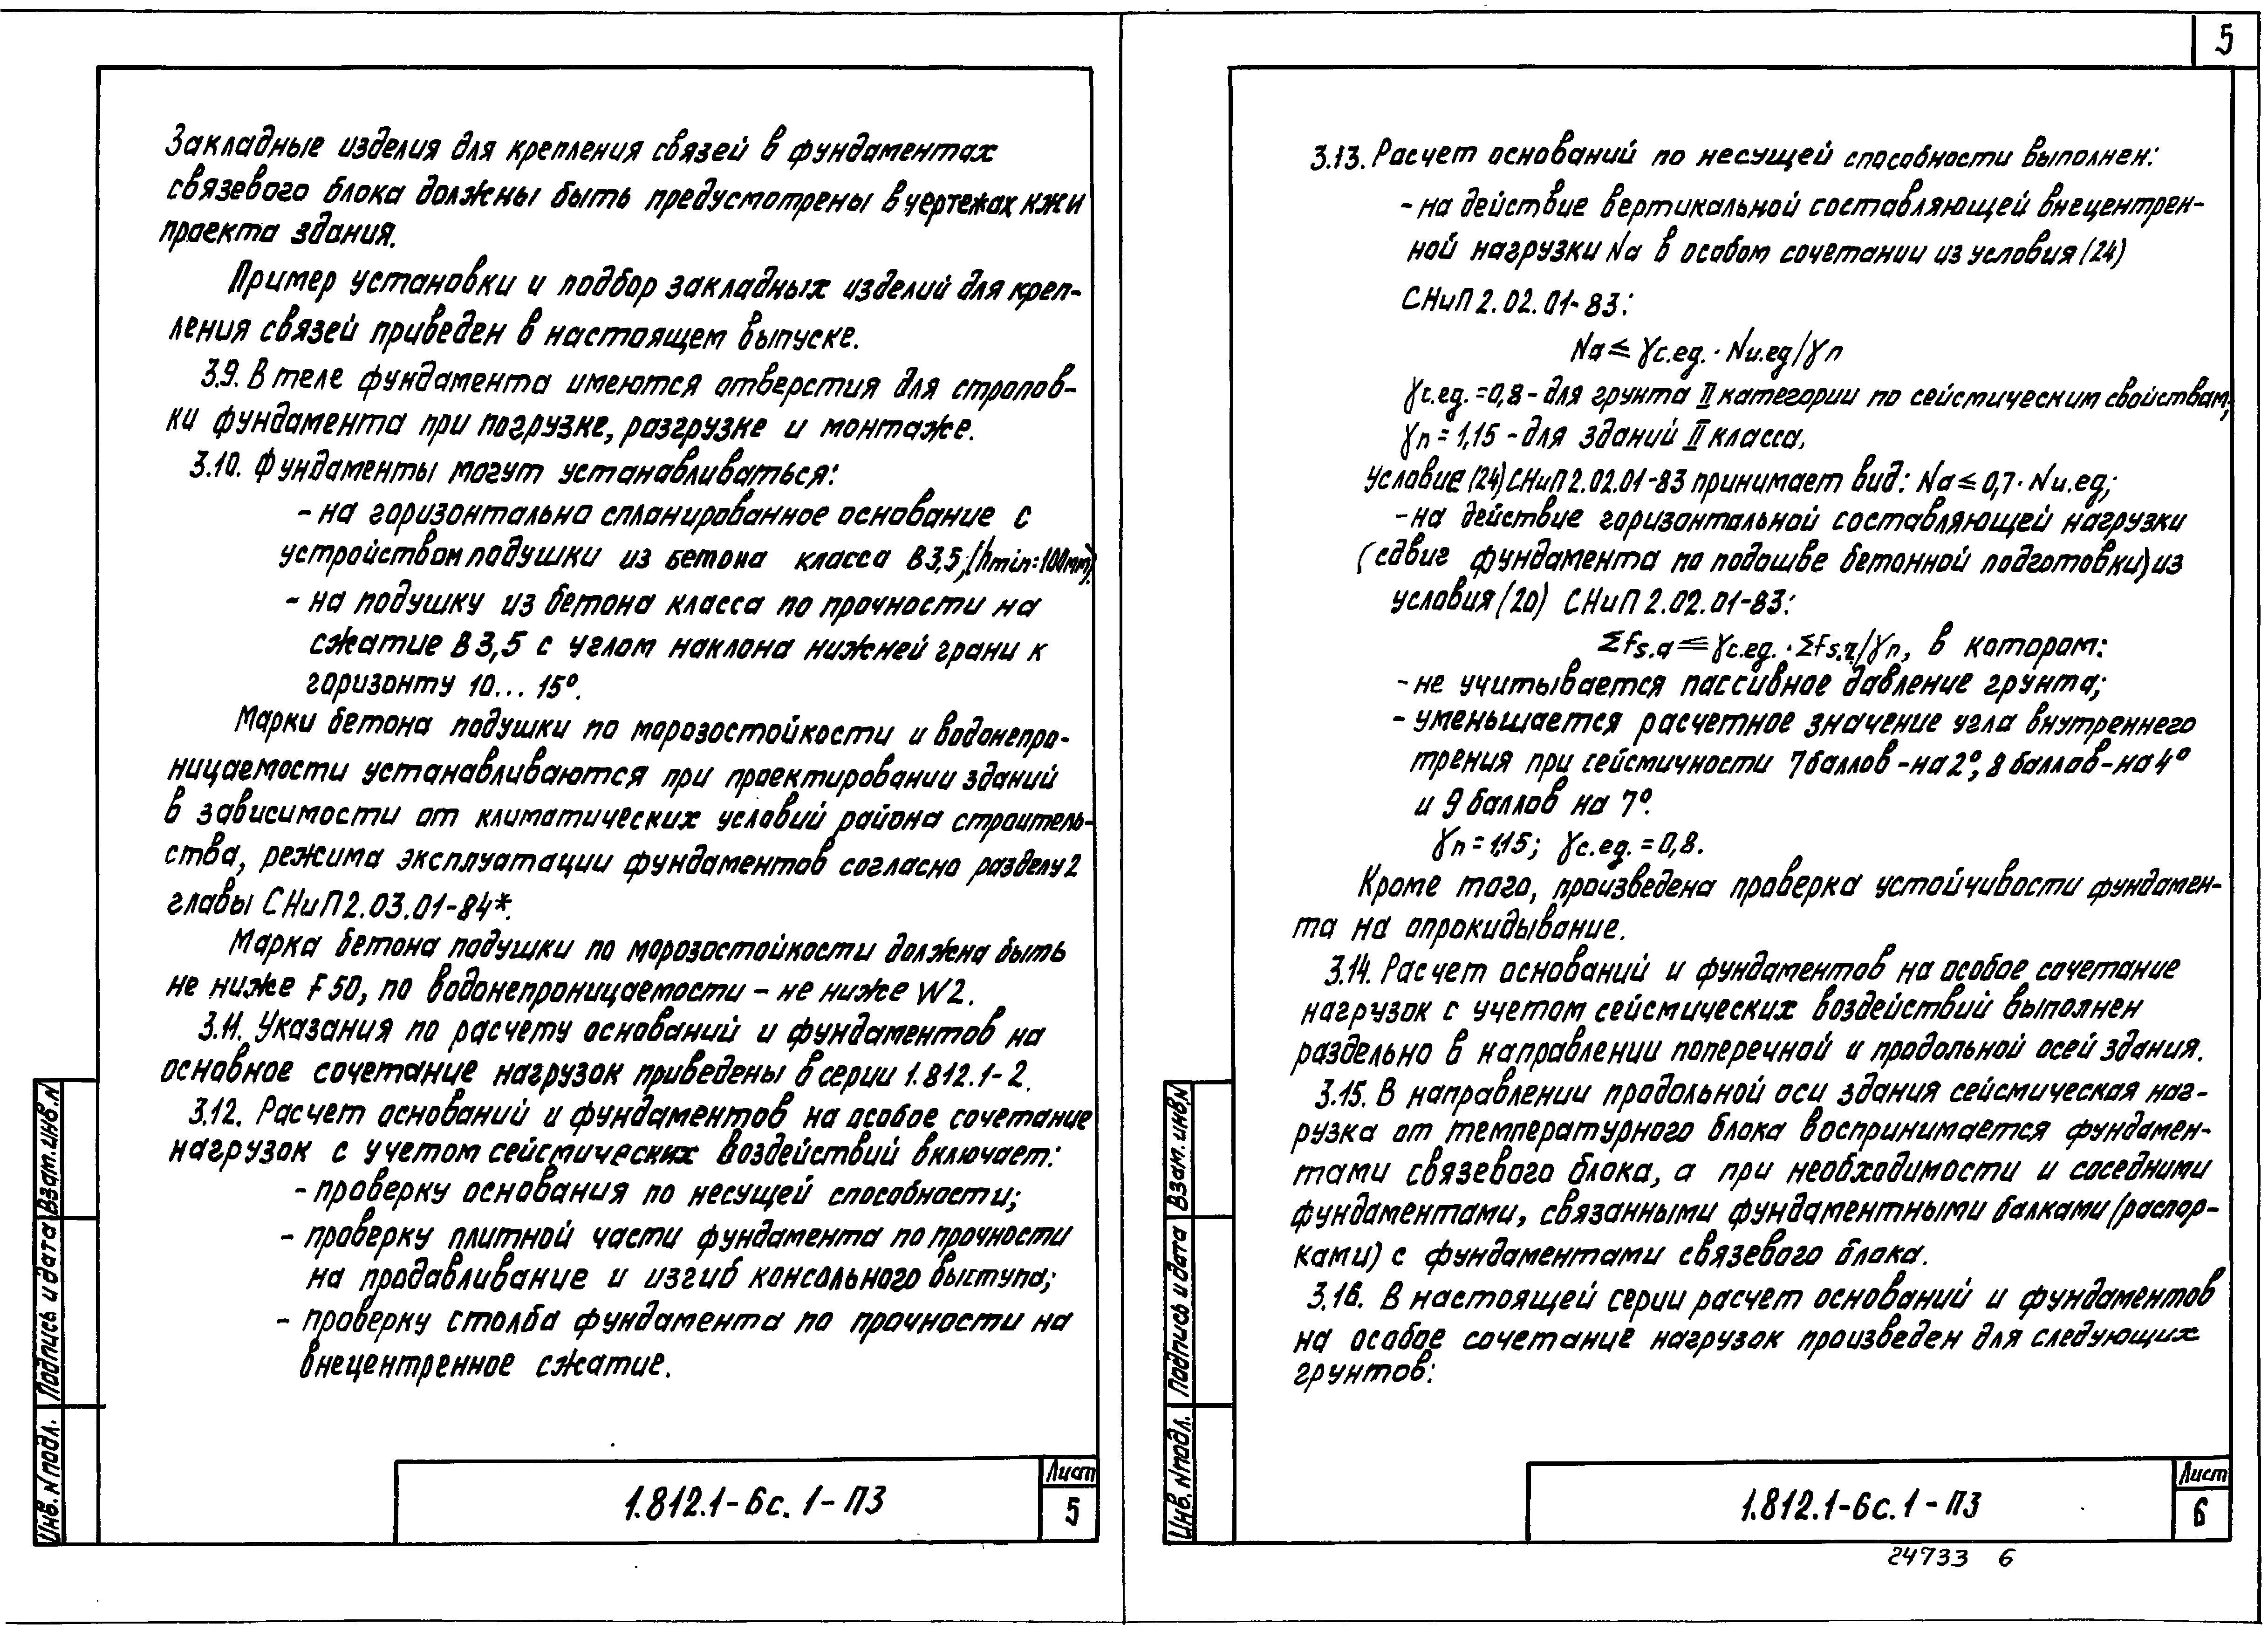 Закладные изделия для крепления связей в фундаментах
связевого блока должны быть предусмотрены в чертежах кжи
проекта здания.
Пример установки и подбор закладных изделий для креп-
ления связей приведен в настоящем выпуске.
3.9. В теле фундамента имеются отверстия для строповки
ки фундамента при погрузке, разгрузке и монтаже.
3.10. Фундаменты могут устанавливаться:
- на горизонтально спланированное основание с
устройством подушки из бетона класса В3,5; (hmin=100мм)
- на подушку из бетона класса по прочности на
сжатие В 3,5 с углом наклона нижней грани к
горизонту 10... 15°.
Марки бетона подушки по морозостойкости и водонепро-
ницаемости устанавливаются при проектировании зданий
в зависимости от климатических условий района строитель-
ства, режима эксплуатации фундаментов согласно разделу 2
главы СНиП 2.03.01-84*.
Марка бетона подушки по морозостойкости должна быть
не ниже F50, по водонепроницаемости - не ниже W2.
3.11. Указания по расчету оснований и фундаментов на
основное сочетание нагрузок приведены в серии 1.812.1-2.
3.12. Расчет оснований и фундаментов на особое сочетание
нагрузок с учетом сейсмических воздействий включает:
- проверку основания по несущей способности;
- проверку плитной части фундамента по прочности
на продавливание и изгиб консольного выступа;
- проверку столба фундамента по прочности на
внецентренное сжатие.
Инв. N подл. Подпись и дата Взам. инв. N
1.812.1-6с. 1-ПЗ
Лист
5
5
3.13. Расчет оснований по несущей способности выполнен:
- на действие вертикальной составляющей внецентрен-
ной нагрузки Na в особом сочетании из условия (24)
СНиП 2.02.01-83:
Na ≤ γc.eq. · Nu.eq/γn
γc.eq. = 0,8 - для грунта II категории по сейсмическим свойствам;
γn = 1,15 - для зданий II класса.
Условие (24) СНиП 2.02.01-83 принимает вид: Na ≤ 0,7 · Nu.eq;
- на действие горизонтальной составляющей нагрузки
(сдвиг фундамента по подошве бетонной подготовки) из
условия (20) СНиП 2.02.01-83:
Σfs.a ≤ γc.eq. · Σfs.r/γn, в котором:
- не учитывается пассивное давление грунта;
- уменьшается расчетное значение угла внутреннего
трения при сейсмичности 7 баллов - на 2°, 8 баллов - на 4°
и 9 баллов на 7°.
γn = 1,15; γc.eq. = 0,8.
Кроме того, произведена проверка устойчивости фундамен-
та на опрокидывание.
3.14. Расчет оснований и фундаментов на особое сочетание
нагрузок с учетом сейсмических воздействий выполнен
раздельно в направлении поперечной и продольной осей здания.
3.15. В направлении продольной оси здания сейсмическая наг-
рузка от температурного блока воспринимается фундамен-
тами связевого блока, а при необходимости и соседними
фундаментами, связанными фундаментными балками (распор-
ками) с фундаментами связевого блока.
3.16. В настоящей серии расчет оснований и фундаментов
на особое сочетание нагрузок произведен для следующих
грунтов:
Инв. N подл. Подпись и дата Взам. инв. N
1.812.1-6с. 1-ПЗ
Лист
6
24733 6